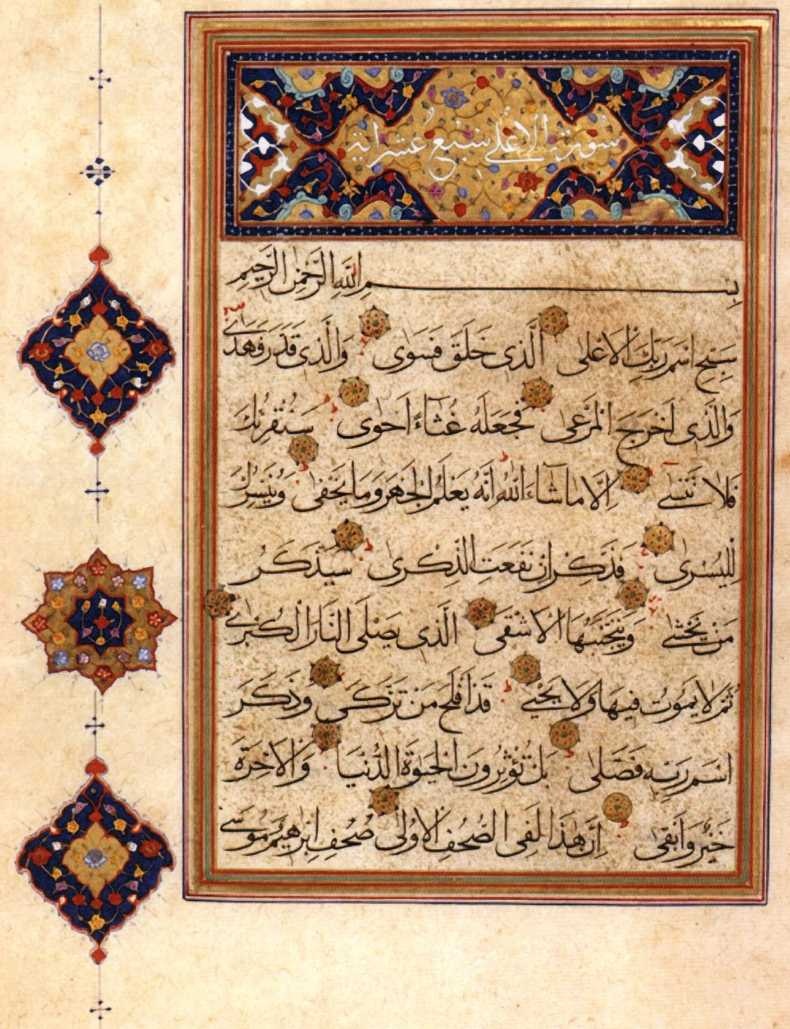 سورة الاعلى سبع عشر اية
بسم الله الرحمن الرحيم
سبح اسم ربك الاعلى الذى خلق فسوى والذى قدر فهدى
والذى اخرج المرعى فجعله غثاء احوى سنقرئك
فلا تنسى الا ما شاء الله انه يعلم الجهر وما يخفى ونيسرك
لليسرى فذكر ان نفعت الذكرى سيذكر
من يخشى ويتجنبها الاشقى الذى يصلى النار الكبرى
ثم لا يموت فيها ولا يحيى قد افلح من تزكى وذكر
اسم ربه فصلى بل تؤثرون الحيوة الدنيا والاخرة
خير وابقى ان هذا لفى الصحف الاولى صحف ابرهيم وموسى